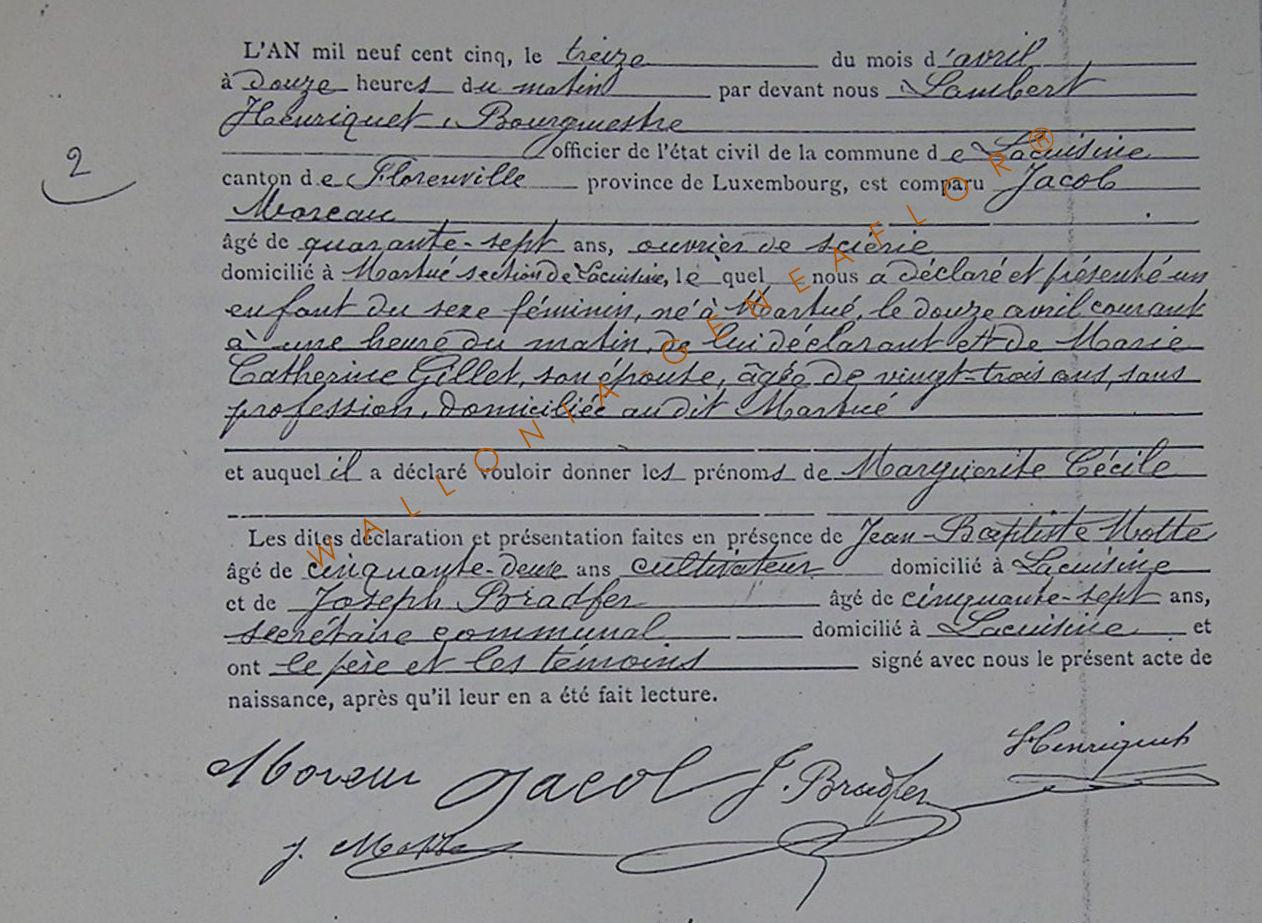 L'AN mil neuf cent cinq, le treize du mois d'avril
à douze heures du matin par devant nous Lambert
Henriquet, Bourgmestre
officier de l'état civil de la commune de Lacuisine
canton de Florenville province de Luxembourg, est comparu Jacob
Moreau
âgé de quarante-sept ans, ouvrier de scierie
domicilié à Martué section de Lacuisine, lequel nous a déclaré et présenté un
enfant du sexe féminin, né à Martué, le douze avril courant
à une heure du matin, de lui déclarant et de Marie
Catherine Gillet, son épouse, âgée de vingt-trois ans, sans
profession, domiciliée au dit Martué
2
et auquel il a déclaré vouloir donner les prénoms de Marguerite Cécile
Les dites déclaration et présentation faites en présence de Jean-Baptiste Motte
âgé de cinquante-deux ans cultivateur domicilié à Lacuisine
et de Joseph Bradfer âgé de cinquante-sept ans,
secrétaire communal domicilié à Lacuisine et
ont le père et les témoins signé avec nous le présent acte de
naissance, après qu'il leur en a été fait lecture.
Henriquet
Moreau Jacob J. Bradfer
J. Motte
WALLONIA-GENEAFLOR®